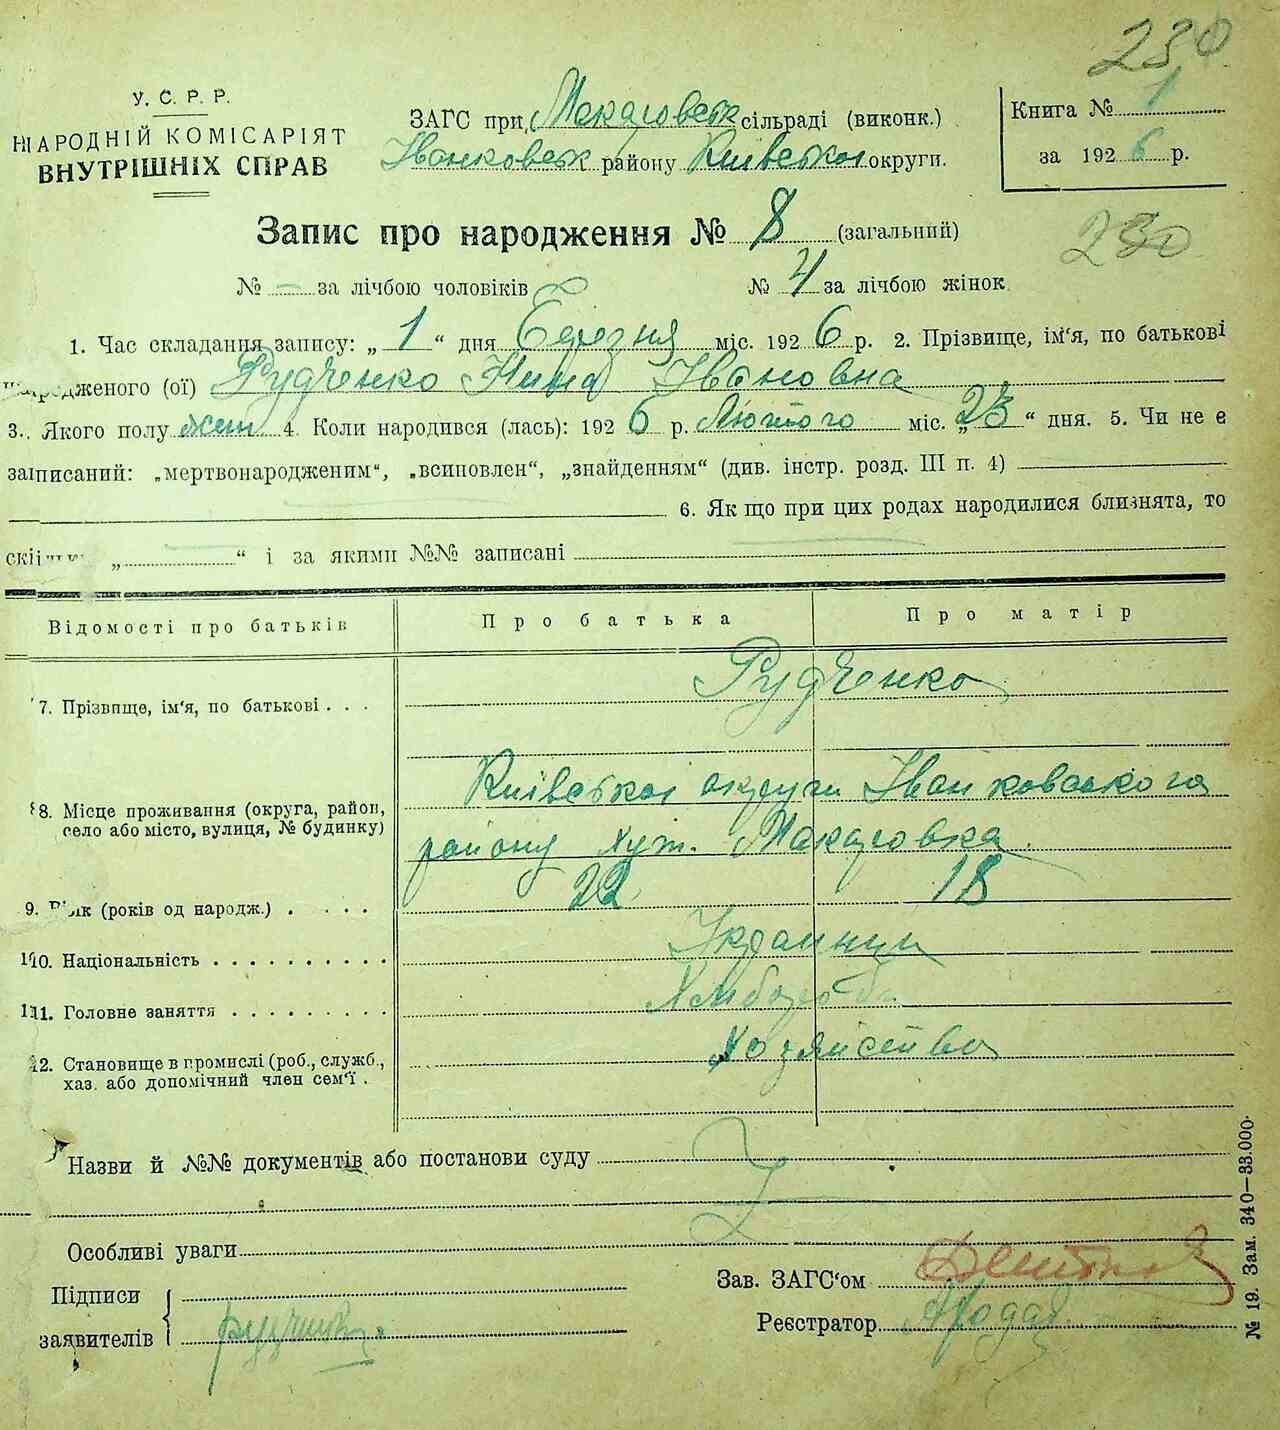 230
У. С. Р. Р.
НАРОДНІЙ КОМІСАРІЯТ
ВНУТРІШНІХ СПРАВ
ЗАГС при Макаровськ сільраді (виконк.)
Іванковськ району Київської округи.
Книга № 1
за 1926 р.
Запис про народження № 8 (загальний)
230
№ — за лічбою чоловіків
№ 4 за лічбою жінок
1. Час складання запису: „1“ дня Березня міс. 1926 р. 2. Прізвище, ім'я, по батькові
народженого (ої) Рудченко Нина Івановна
3. Якого полу жен 4. Коли народився (лась): 1926 р. Лютого міс. „23“ дня. 5. Чи не є
записаний: „мертвонародженим“, „всиновлен“, „знайденням“ (див. інстр. розд. III п. 4)
6. Як що при цих родах народилися близнята, то
„ “ і за якими №№ записані
Відомості про батьків
Про батька
Про матір
7. Прізвище, ім'я, по батькові . . .
Рудченко
8. Місце проживання (округа, район,
село або місто, вулиця, № будинку)
Київської округи Іванковського
району хут. Макаровка.
9. Вік (років од народж.) . . . .
22
18
10. Національність . . . . . . . . . .
Українци
11. Головне заняття . . . . . . . . .
Хлібороби
12. Становище в промислі (роб., служб.,
хаз. або допомічний член сем'ї .
Хозяйство
Назви й №№ документів або постанови суду
Особливі уваги
Підписи
заявителів
Зав. ЗАГС'ом
Реєстратор
№ 19. Зам. 340—33.000.